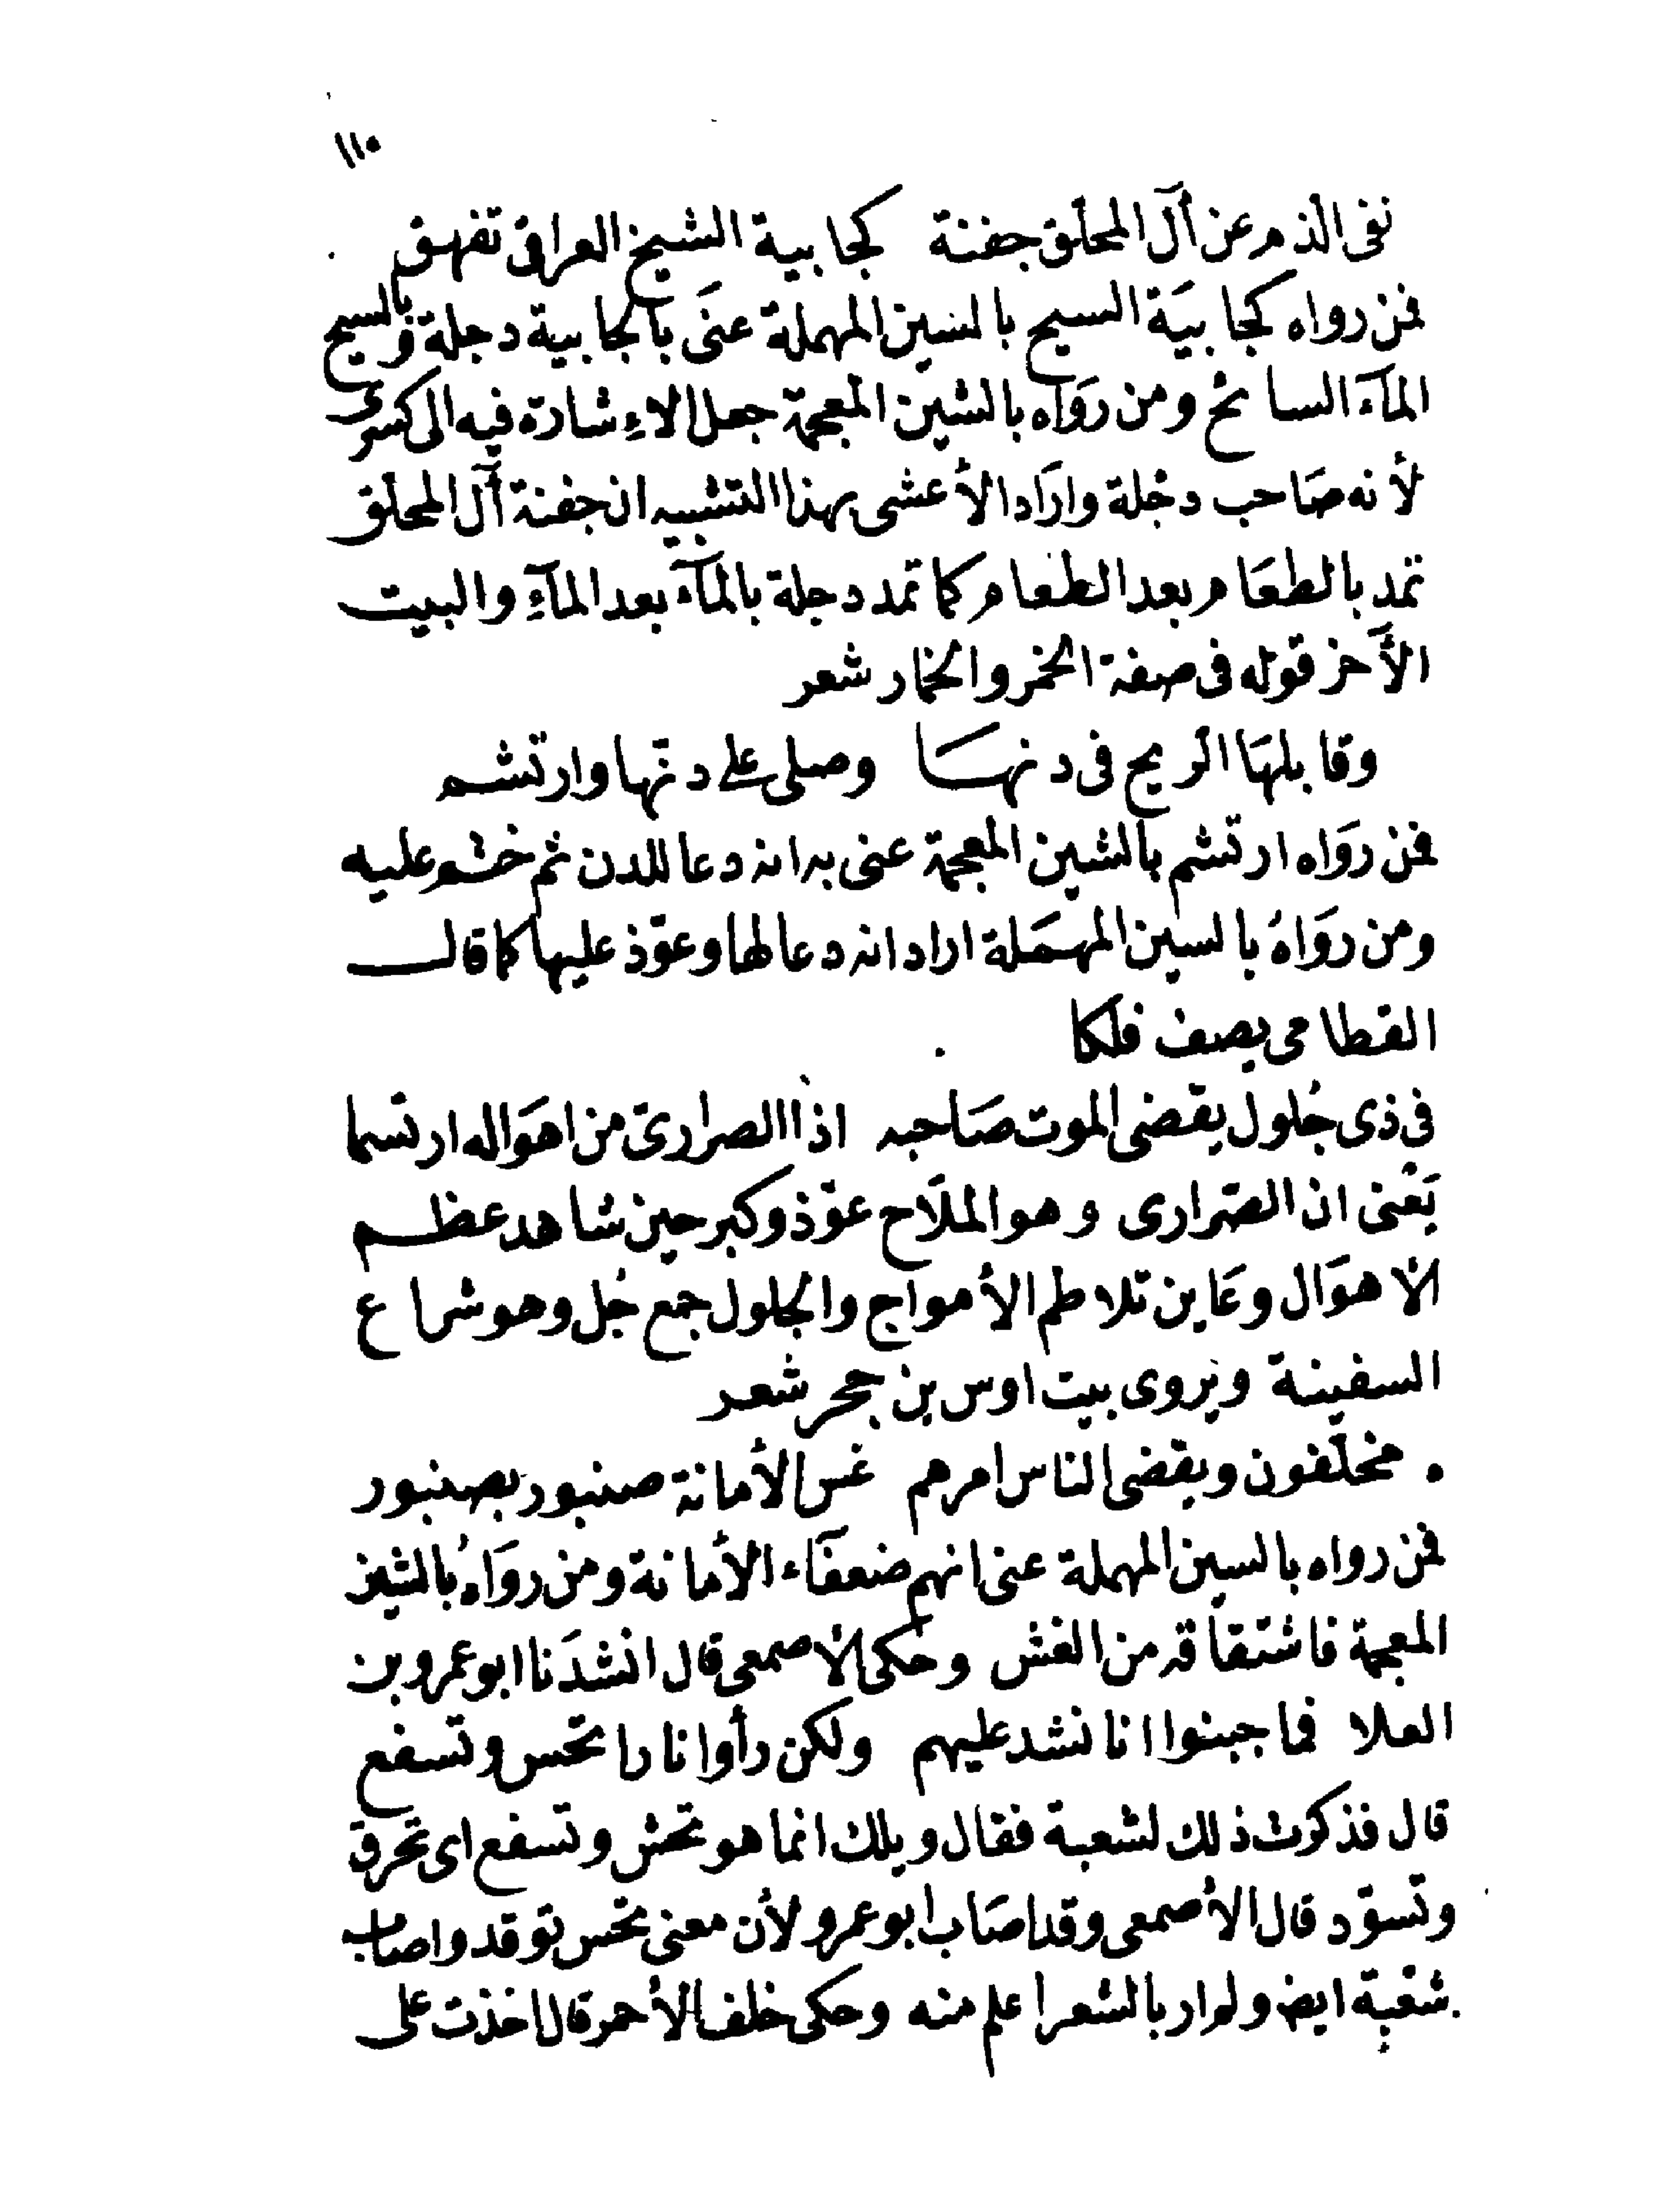 ١١٠
نفى الذم عن آل المحلق جفنة كجابية الشيخ العراقى تفهق
فمن رواه كجابيَة السيح بالسين المهملة عنَى بالجابية دجلة وبالسيح
المآء السائح ومن رَوَاه بالشين المعجمة جعل الاءِشارة فيه الى كسرى
لأنه صَاحب دجْلة وارَاد الأعشى بهذا التشبيه ان جفنة آل المحلق
تمد بالطعَام بعد الطعام كما تمد دجلة بالمآء بعد المآءِ والبيت
الآخر قوله فى صفة الخمر والخمار شعر
وقابلهَا الريح فى دنهسَا وصلى على دنّها وارتشم
فمن روَاه ارتشم بالشين المعجمة عنى به انه دعا للدن ثم ختم عليه
ومن روَاهُ بالسين المهمَلة اراد انه دعا لها وعوّذ عليها كما قال
القطامى يصف فلكا
فى ذى جُلول يقضى الموت صَاحبه اذا الصرارىّ من اهوَاله ارتسما
يَعْنى ان الصّرارى وهو الملّاح عوّذ وكبر حين شاهد عظم
الأهوَال وعَاين تلاطم الأمواج والجلول جمع جُل وهو شراع
السفينة ويُروى بيت اوس بن حجر شعر
مخلّفون ويقضى الناس امرهم غس الأمانة صنبور بصنبور
فمن رواه بالسين المهملة عنى انهم ضعفَاء الأمانة ومن روَاهُ بالشين
المعجمة فاشتقاقه من الغش وحكى الأصمعى قال انشدَنا ابو عمرو بن
العلا فما جبنوا انا نشد عليهم ولكن رأوا نارا تحس وتسفع
قال فذكرت ذلك لشعبة فقال ويلك انما هو تحش وتسفع اى تحرق
وتسوّد قال الأصمعى وقد اصَاب ابو عمرو لأن معنى تحس توقد واصاب
شعْبة ايضا ولم ار بالشعر اعلم منه وحكى خلف الأحمر قال اخذت على